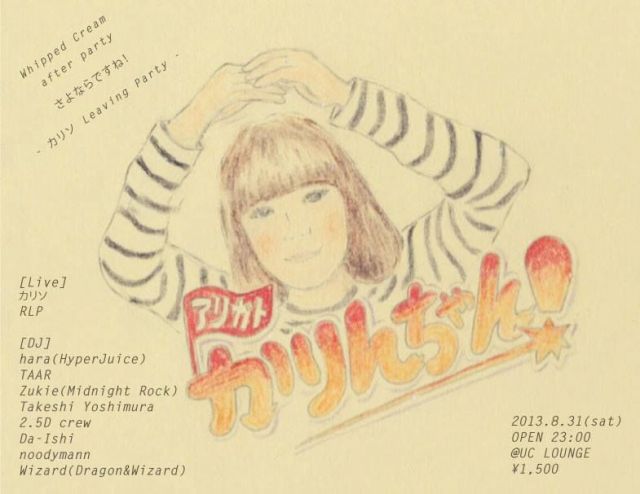 Whipped Cream
after party
さよならですね!
- カリソ Leaving Party -
アリガト
かりんちゃん!
[Live]
カリソ
RLP
[DJ]
hara(HyperJuice)
TAAR
Zukie(Midnight Rock)
Takeshi Yoshimura
2.5D crew
Da-Ishi
noodymann
Wizard(Dragon&Wizard)
2013.8.31(sat)
OPEN 23:00
@UC LOUNGE
¥1,500